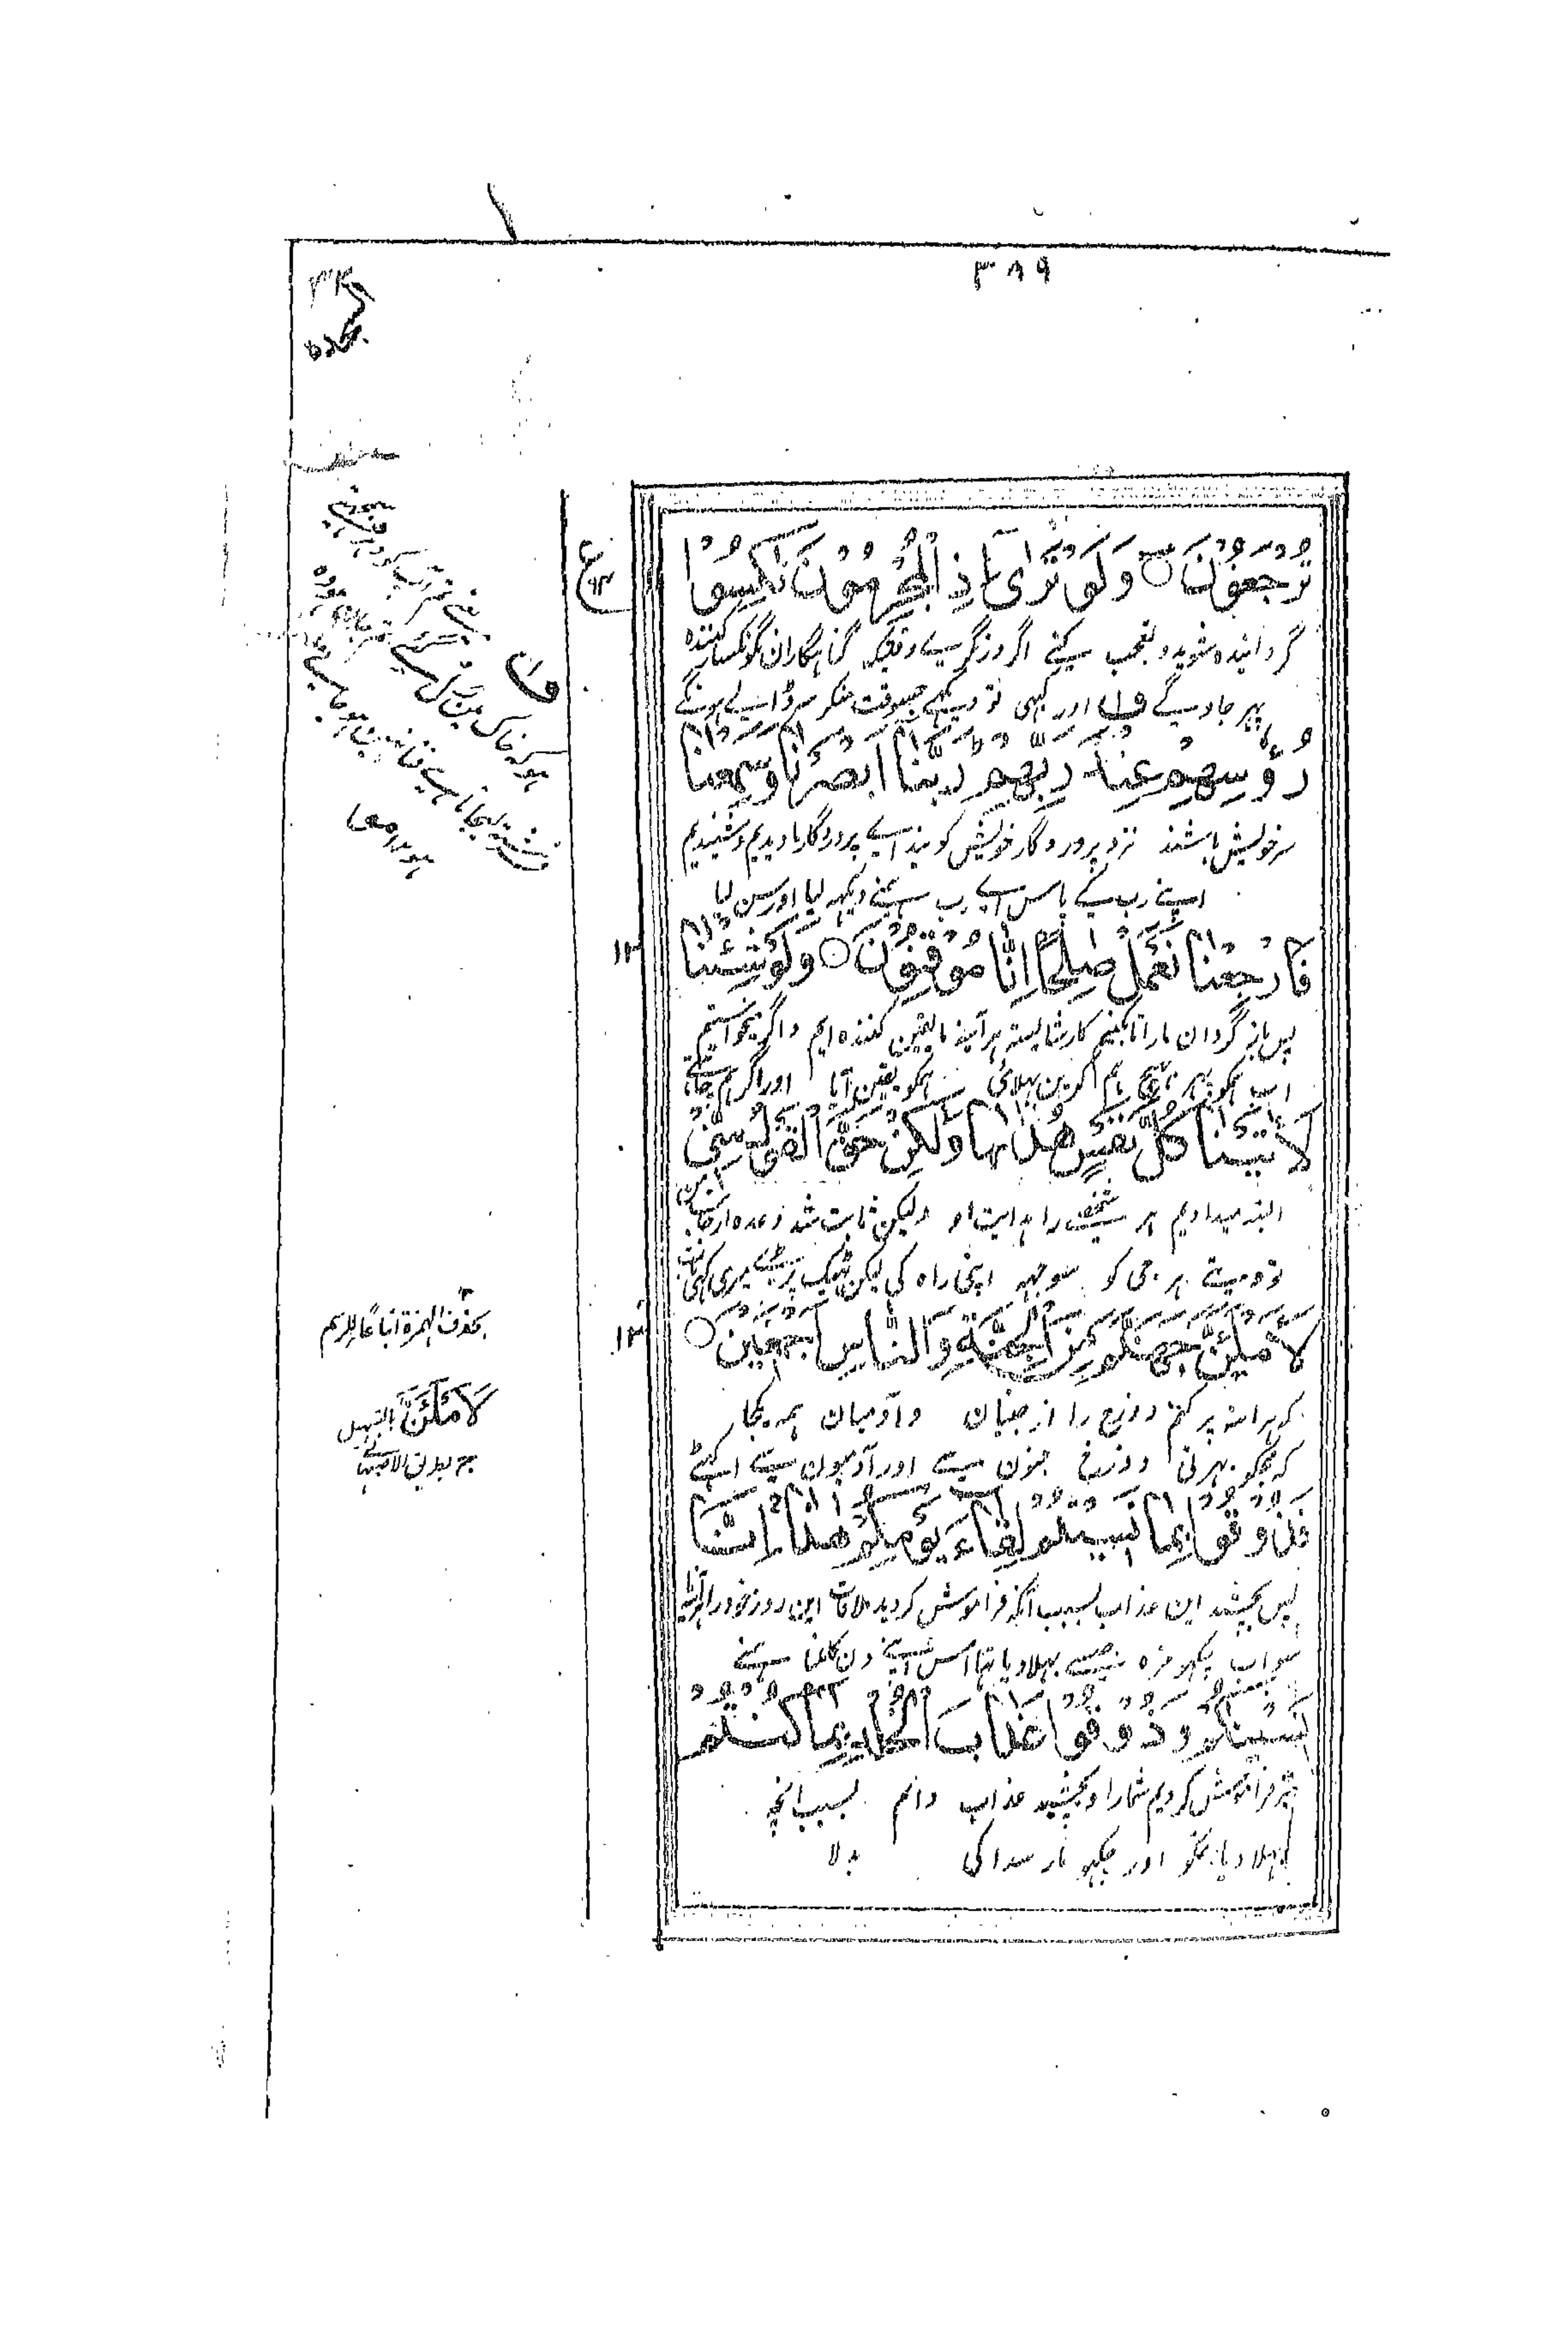 ۳۸۹
سجده
تُرْجَعُوْنَ ○ وَلَوْ تَرٰٓى اِذِ الْمُجْرِمُوْنَ نَاكِسُوْا
گردانیده شوید و تعجب کنی اگر در نگری وقتیکه گناہگاران نگونسار کننده
پہر جاوگے ف۱ اور کبہی تو دیکہے جسوقت منکر سر ڈالے ہونگے
رُءُوْسِهِمْ عِنْدَ رَبِّهِمْ رَبَّنَا اَبْصَرْنَا وَسَمِعْنَا
سر خویش باشند نزد پروردگار خویش گویند اے پروردگار ما دیدیم و شنیدیم
اپنے رب کے پاس اے رب ہمنے دیکہہ لیا اور سن لیا
فَارْجِعْنَا نَعْمَلْ صٰلِحًا اِنَّا مُوْقِنُوْنَ ○ وَلَوْ شِئْنَا
پس باز گردان ما را تا بکنیم کار شایسته ہر آینه ما یقین کننده ایم و اگر میخواستیم
اب ہمکو پہر بہیج ہم کرین بہلائی ہمکو یقین آیا اور اگر ہم چاہتے
لَاٰتَيْنَا كُلَّ نَفْسٍ هُدٰىهَا وَلٰكِنْ حَقَّ الْقَوْلُ مِنِّيْ
البته میدادیم ہر شخصے را ہدایت او ولیکن ثابت شد وعده از جانب من
تو دیتے ہر جی کو سوجہہ اپنی راہ کی لیکن ٹہیک پڑے میری کہی بات
لَاَمْلَئَنَّ جَهَنَّمَ مِنَ الْجِنَّةِ وَالنَّاسِ اَجْمَعِيْنَ ○
که البته پر کنم دوزخ را از جنیان و آدمیان ہمه یکجا
که مجکو بہرنی دوزخ جنون سے اور آدمیون سے اکٹہے
فَذُوْقُوْا بِمَا نَسِيْتُمْ لِقَآءَ يَوْمِكُمْ هٰذَا اِنَّا
پس بچشید این عذاب بسبب آنکه فراموش کردید ملاقات این روز خود را
سو اب چکہو مزه جیسے بہلا دیا تہا اس اپنے دن کا ملنا ہمنے
نَسِيْنٰكُمْ وَذُوْقُوْا عَذَابَ الْخُلْدِ بِمَا كُنْتُمْ
فراموش کردیم شما را و بچشید عذاب دائم بسبب آنچه
بہلا دیا تمکو اور چکہو مار سدا کی بدلا
ع
ف۱
۱۲
بحذف الہمزة اتباعًا للرسم
۱۳
لَاَمْلَئَنَّ التسہیل
بطریق الاصبہانی